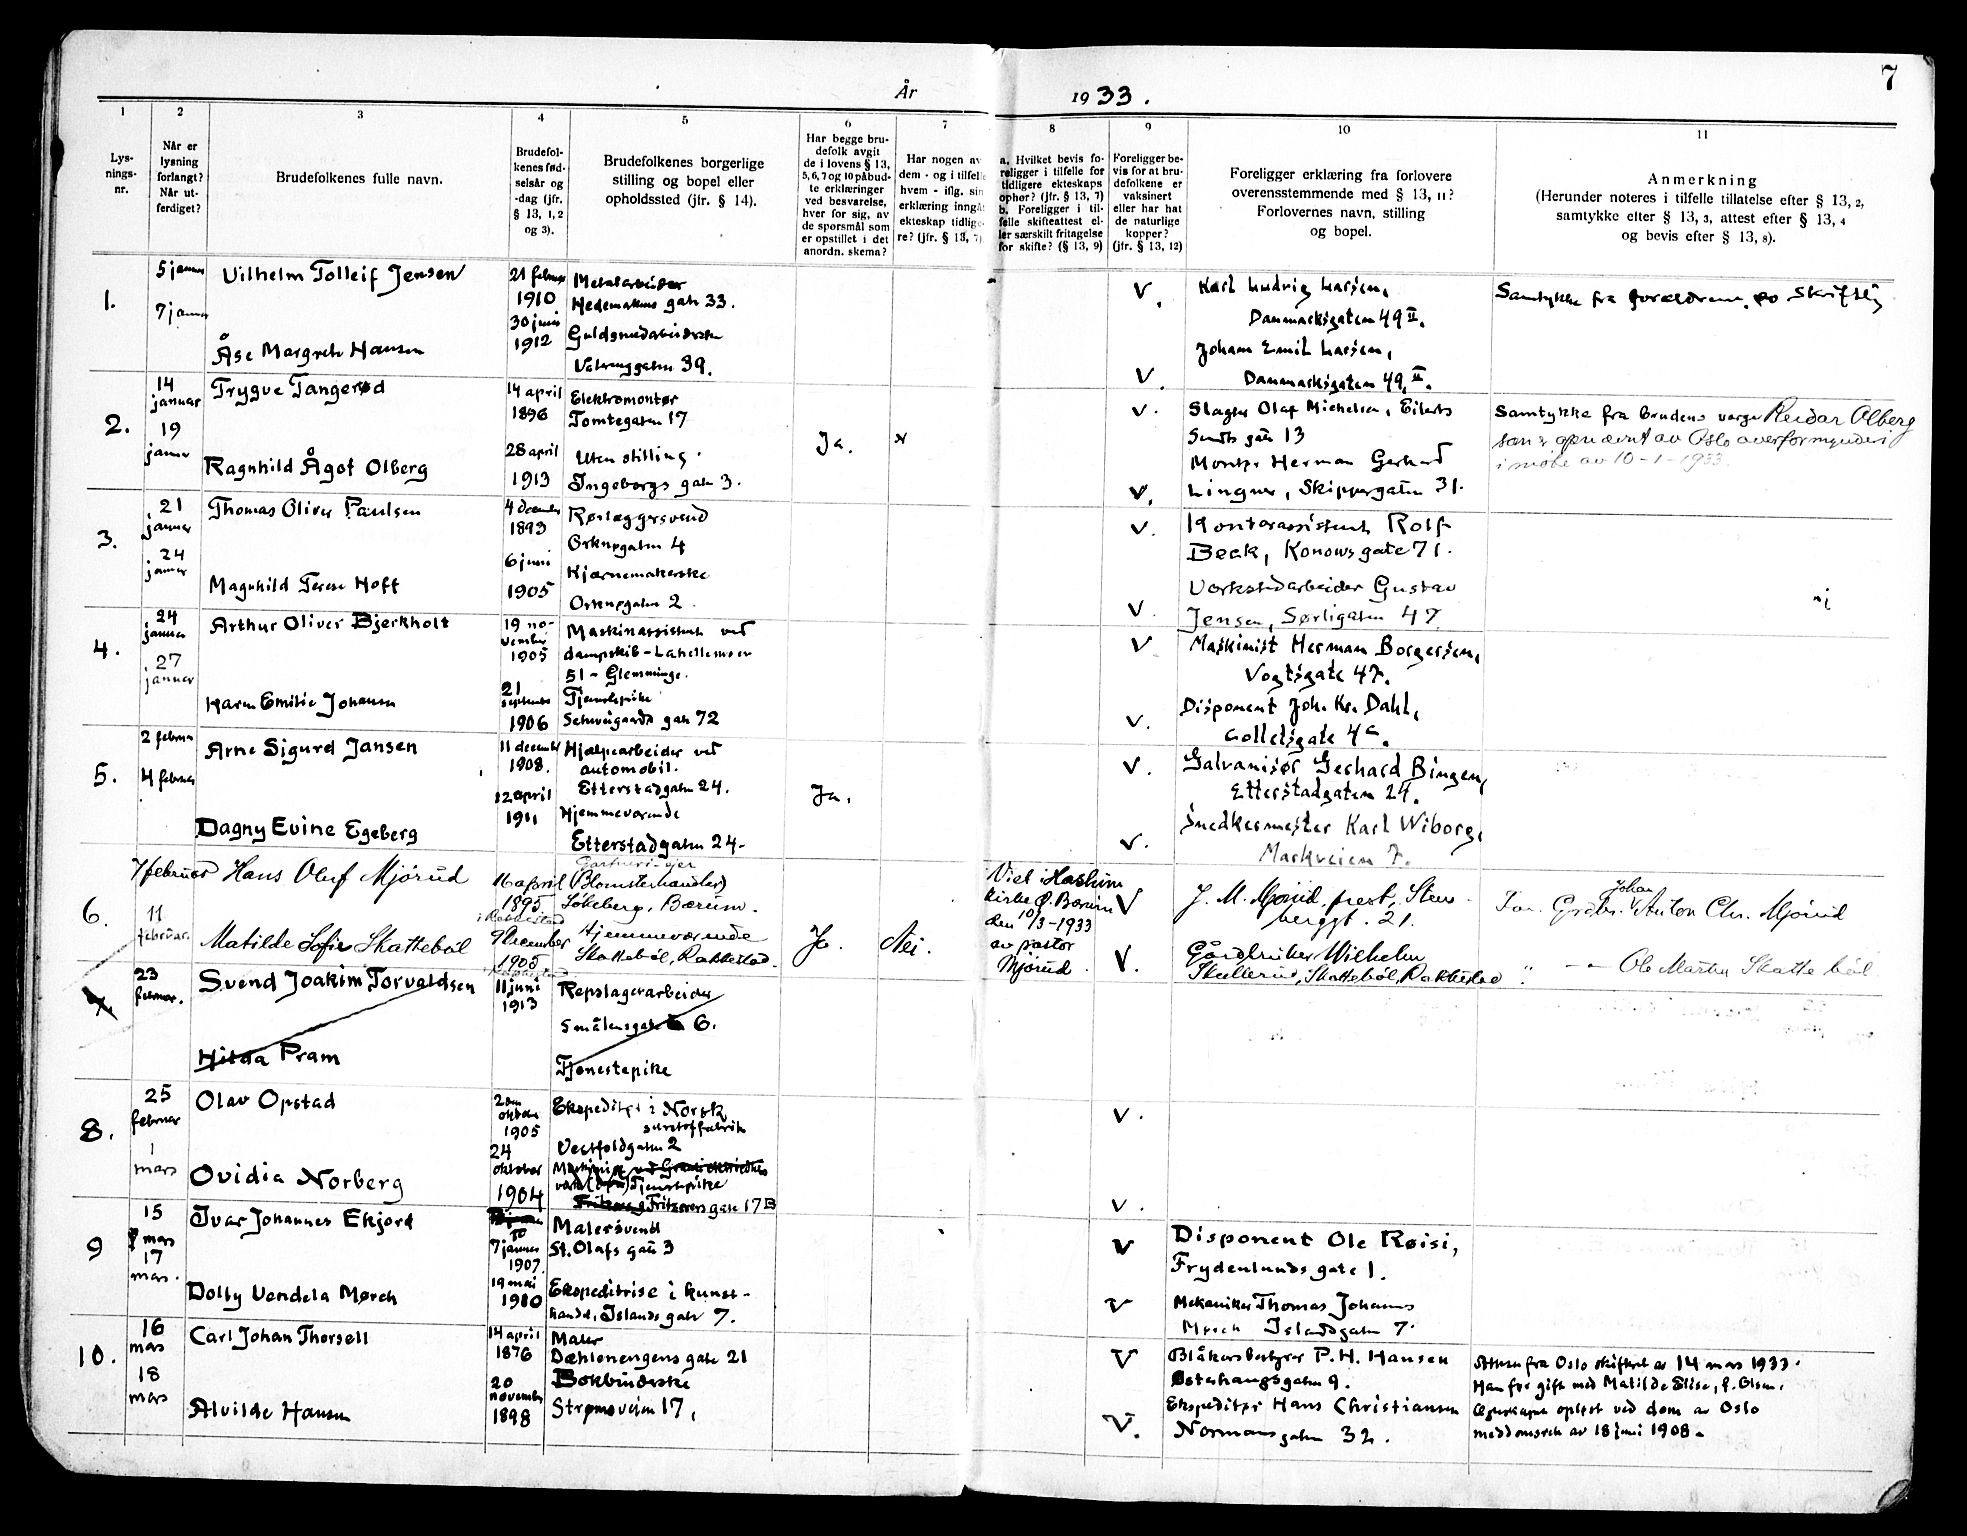 7
År 1933.
1
2
3
4
5
6
7
8
9
10
11
Lys-
nings-
nr.
Når er
lysning
forlangt?
Når ut-
ferdiget?
Brudefolkenes fulle navn.
Brudefol-
kenes fød-
selsår og
-dag (jfr.
§ 13, 1, 2
og 3).
Brudefolkenes borgerlige
stilling og bopel eller
opholdssted (jfr. § 14).
Har begge bru-
defolk avgit
de i lovens § 13,
5, 6, 7 og 10 påbud-
te erklæringer
ved besvarelse,
hver for sig, av
de spørsmål som
er opstillet i det
anordn. skema?
Har nogen av
dem - og i tilfelle
hvem - iflg. sin
erklæring inngåt
ekteskap tidlige-
re? (jfr. § 13, 7)
a. Hvilket bevis fo-
religger i tilfelle for
tidligere ekteskaps
ophør? (jfr. § 13, 7)
b. Foreligger i til-
felle skifteattest el-
ler særskilt fritagelse
for skifte? (§ 13, 9)
Foreligger be-
vis for at bru-
defolkene er
vaksinert
eller har hat
de naturlige
kopper?
(jfr. § 13, 12)
Foreligger erklæring fra forlovere
overensstemmende med § 13, 11?
Forlovernes navn, stilling
og bopel.
Anmerkning
(Herunder noteres i tilfelle tillatelse efter § 13, 2,
samtykke efter § 13, 3, attest efter § 13, 4
og bevis efter § 13, 8).
1.
5 januar
7 januar
Vilhelm Tolleif Jensen
21 februar
1910
Metalarbeider
Hedemarkens gate 33.
30 juni
1912
Guldsmedarbeiderske
Vålerenggaten 39.
Åse Margrete Hansen
V.
Karl Ludvig Larsen,
Danmarksgaten 49 II.
Johan Emil Larsen,
V.
Danmarksgaten 49, II.
Samtykke fra forældrene, skriftlig
2.
14
januar
19
januar
Trygve Tangerød
Ragnhild Ågot Olberg
14 april
1896
28 april
1913
Elektromontør
Tomtegaten 17
Uten stilling.
Ingeborgs gate 3.
Ja.
V.
V.
Slagter Olaf Michelsen, Eilerts
Sundts gate 13
Montør Herman Gerhard
Lingner, Skippergaten 31.
Samtykke fra brudens verge Reidar Olberg
som er opnævnt av Oslo overformynderi
i møte av 10-1-1933.
3.
21
januar
24
januar
Thomas Oliver Paulsen
Magnhild Terese Hoff
4 december
1893
6 juni
1905
Rørlæggersvend
Orknøgaten 4
Kjærnemakerske
Orknøgaten 2.
V.
V.
Kontorassistent Rolf
Beck, Konowsgate 71.
Verkstedarbeider Gustav
Jensen, Sørligaten 47.
4.
24
januar
27
januar
Arthur Oliver Bjerkholt
Karen Emilie Johansen
19 no-
vember
1905
21
september
1906
Maskinassistent ved
dampskib - Lahellemoen
51 - Glemminge.
Tjenestepike
Schweigaards gate 72
V
V.
Maskinist Herman Borgersen,
Vogtsgate 47.
Disponent Joh. Kr. Dahl,
Colletsgate 4c.
5.
2 februar
4 februar
Arne Sigurd Jansen
Dagny Evine Egeberg
11 december
1908.
12 april
1911
Hjælpearbeider ved
automobil.
Etterstadgaten 24.
Hjemmeværende
Etterstadgaten 24-
Ja.
V.
V.
Galvanisør Gerhard Bingen,
Etterstadgaten 24.
Snedkermester Karl Wiborg,
Markveien 7.
6.
7 februar
11
februar.
Hans Oluf Mjørud
Matilde Sofie Skattebøl
16 april
1895
i Rakkestad
9 December
1905
Gartneri-eier
(Blomsterhandler)
Løkeberg, Bærum.
Hjemmeværende
Skattebøl, Rakkestad.
Ja.
Nei.
Viet i Haslum
kirke Ø. Bærum
den 10/3-1933
av pastor
Mjørud.
V
V.
J. M. Mjørud, prest, Stens-
berggt. 21.
Gårdbruker Wilhelm
Skullerud, Skattebøl, Rakkestad
Far. Grdbr. Johan Anton Chr. Mjørud
" - " - Ole Martin Skattebøl
7
23
februar.
Svend Joakim Torvaldsen
Hilda Pram
11 juni
1913
Repslagerarbeider
Smålensgate 6.
Tjenestepike
8.
25
februar
1
mars
Olav Opstad
Ovidia Norberg
2den
oktober
1905
24
oktober
1904
Ekspeditør i Norsk
surstoffabrik
Vestfoldgaten 2
Tjenestepike
Fritzners gate 17 B
V.
V.
9
15
mars
17
mars.
Ivar Johannes Ekjord
Dolly Vendela Mørch
7 januar
1907.
19 mai
1910
Malersvend
St. Olafs gate 3
Ekspeditrise i kunst-
handel, Islands gate 7.
V
V
Disponent Ole Røisi,
Frydenlunds gate 1.
Mekaniker Thomas Johannes
Mørch Islandsgaten 7.
10.
16
mars
18
mars
Carl Johan Thorsell
Alvilde Hansen
14 april
1876
20
november
1898
Maler
Dæhlenengens gate 21
Bokbinderske
Strømsveien 17,
V
V.
Blåkorsbestyrer P. H. Hansen
Østerhausgaten 9.
Ekspeditør Hans Christiansen
Normansgaten 32.
Attest fra Oslo skifteret av 14 mars 1933.
Han før gift med Matilde Elise, f. Olsen.
Egteskapet opløst ved dom av Oslo
meddomsret av 18 juni 1908.